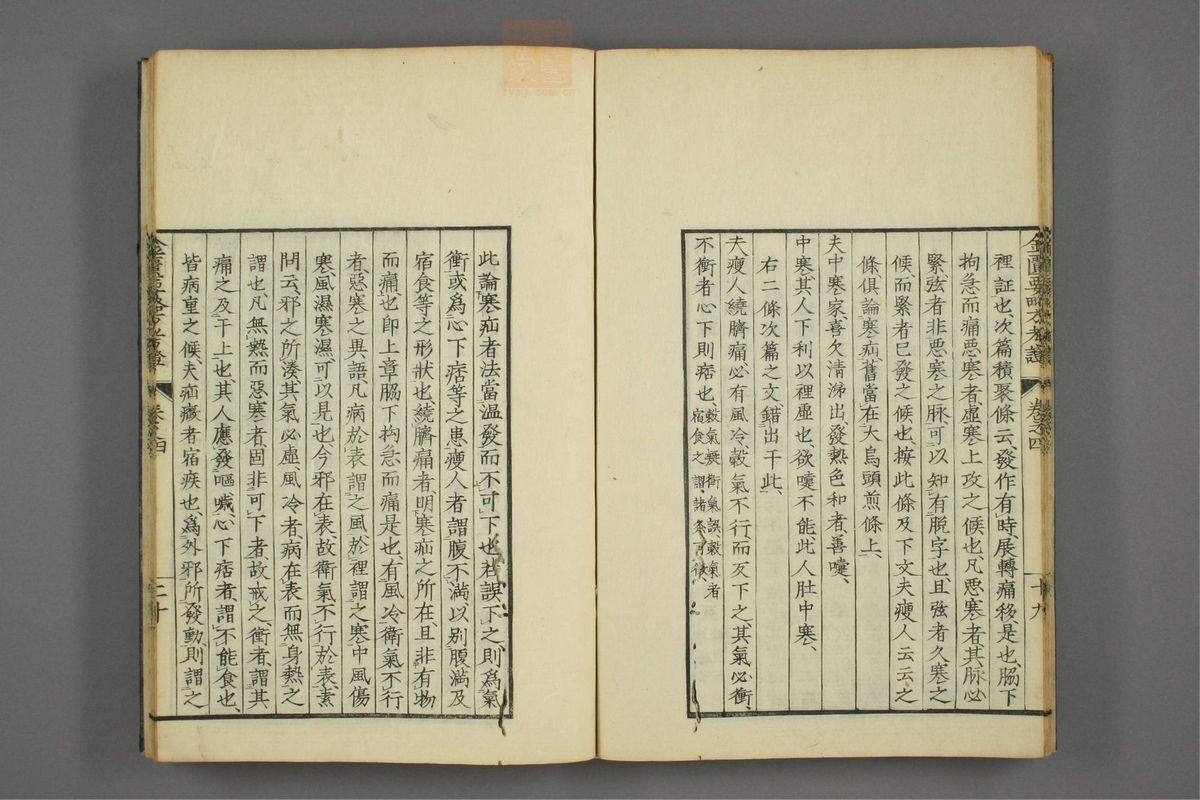 金匱要略方考證 卷之四 十九
裡証也、次篇積聚條云、發作有時、展轉痛移是也、脇下
拘急而痛惡寒者、虛寒上攻之候也、凡惡寒者、其脉必
緊、弦者非惡寒之脉、可以知有脫字也、且弦者久寒之
候、而緊者已發之候也、按此條及下文夫瘦人云云之
條、俱論寒疝、舊當在大烏頭煎條上、
夫中寒家、喜欠、清涕出、發熱色和者、善嚏、
中寒、其人下利、以裡虛也、欲嚏不能、此人肚中寒、
右二條、次篇之文、錯出于此、
夫瘦人繞臍痛、必有風冷、穀氣不行、而反下之、其氣必衝、
不衝者、心下則痞也、
穀氣疑衛氣誤、穀氣者
宿食之謂、諸条可徵
此論寒疝者法當溫發、而不可下也、若誤下之、則為氣
衝、或為心下痞等之患、瘦人者、謂腹不滿、以别腹滿及
宿食等之形狀也、繞臍痛者、明寒疝之所在、且非有物
而痛也、即上章脇下拘急而痛是也、有風冷衛氣不行
者、惡寒之異語、凡病於表謂之風、於裡謂之寒、中風傷
寒、風濕寒濕、可以見也、今邪在表、故衛氣不行於表、素
問云、邪之所湊、其氣必虛、風冷者、病在表而無身熱之
謂也、凡無熱而惡寒者、固非可下者、故戒之、衝者、謂其
痛之及于上也、其人應發嘔噦、心下痞者、謂不能食也、
皆病重之候、夫疝癥者宿疾也、為外邪所發動、則謂之
卷之四 二十
rysj.com.cn